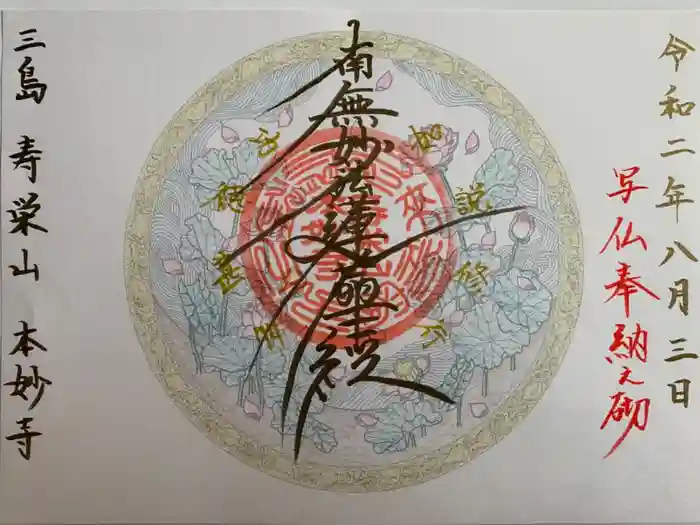 令和二年八月三日
写仏奉納之砌
如説修行
南無妙法蓮華経
三島 寿栄山 本妙寺